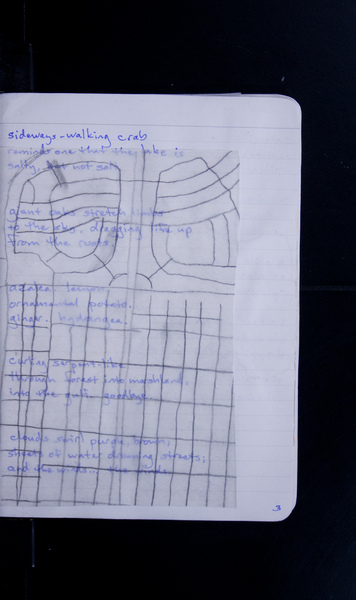 sideways-walking crab
reminds one that the lake is
salty, but not salt
giant oaks stretch limbs
to the sky, dragging life up
from the roots.
azalea. lemon.
ornamental potato.
ginger. hydrangea.
curving serpent-like
through forest into marshland,
into the gulf. goodbye.
clouds swirl purple, brown;
sheets of water drowning streets;
and the winds... the winds.
3